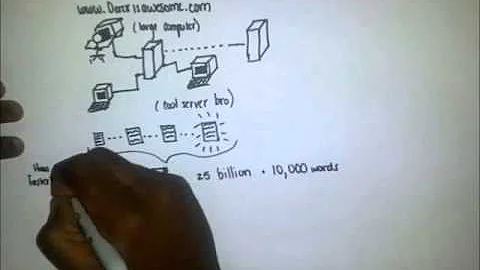 www.Derekisawesome.com
(large computer)
(cool server bro)
25 billion • 10,000 words